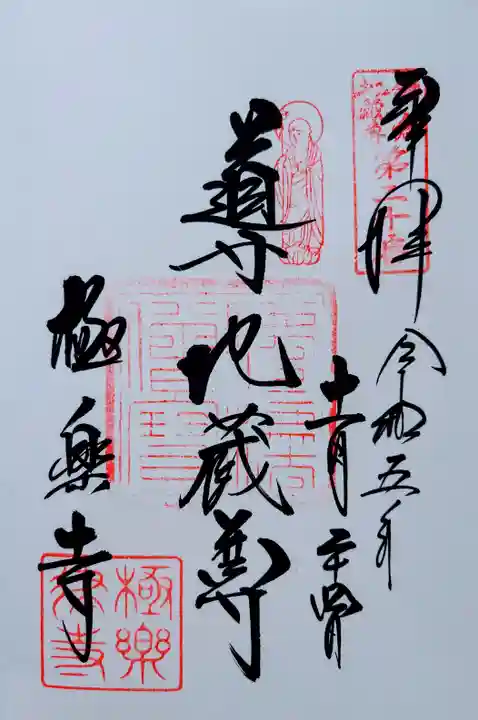 奉拝
令和五年
十一月
二十四日
導地蔵尊
極楽寺
極樂寺